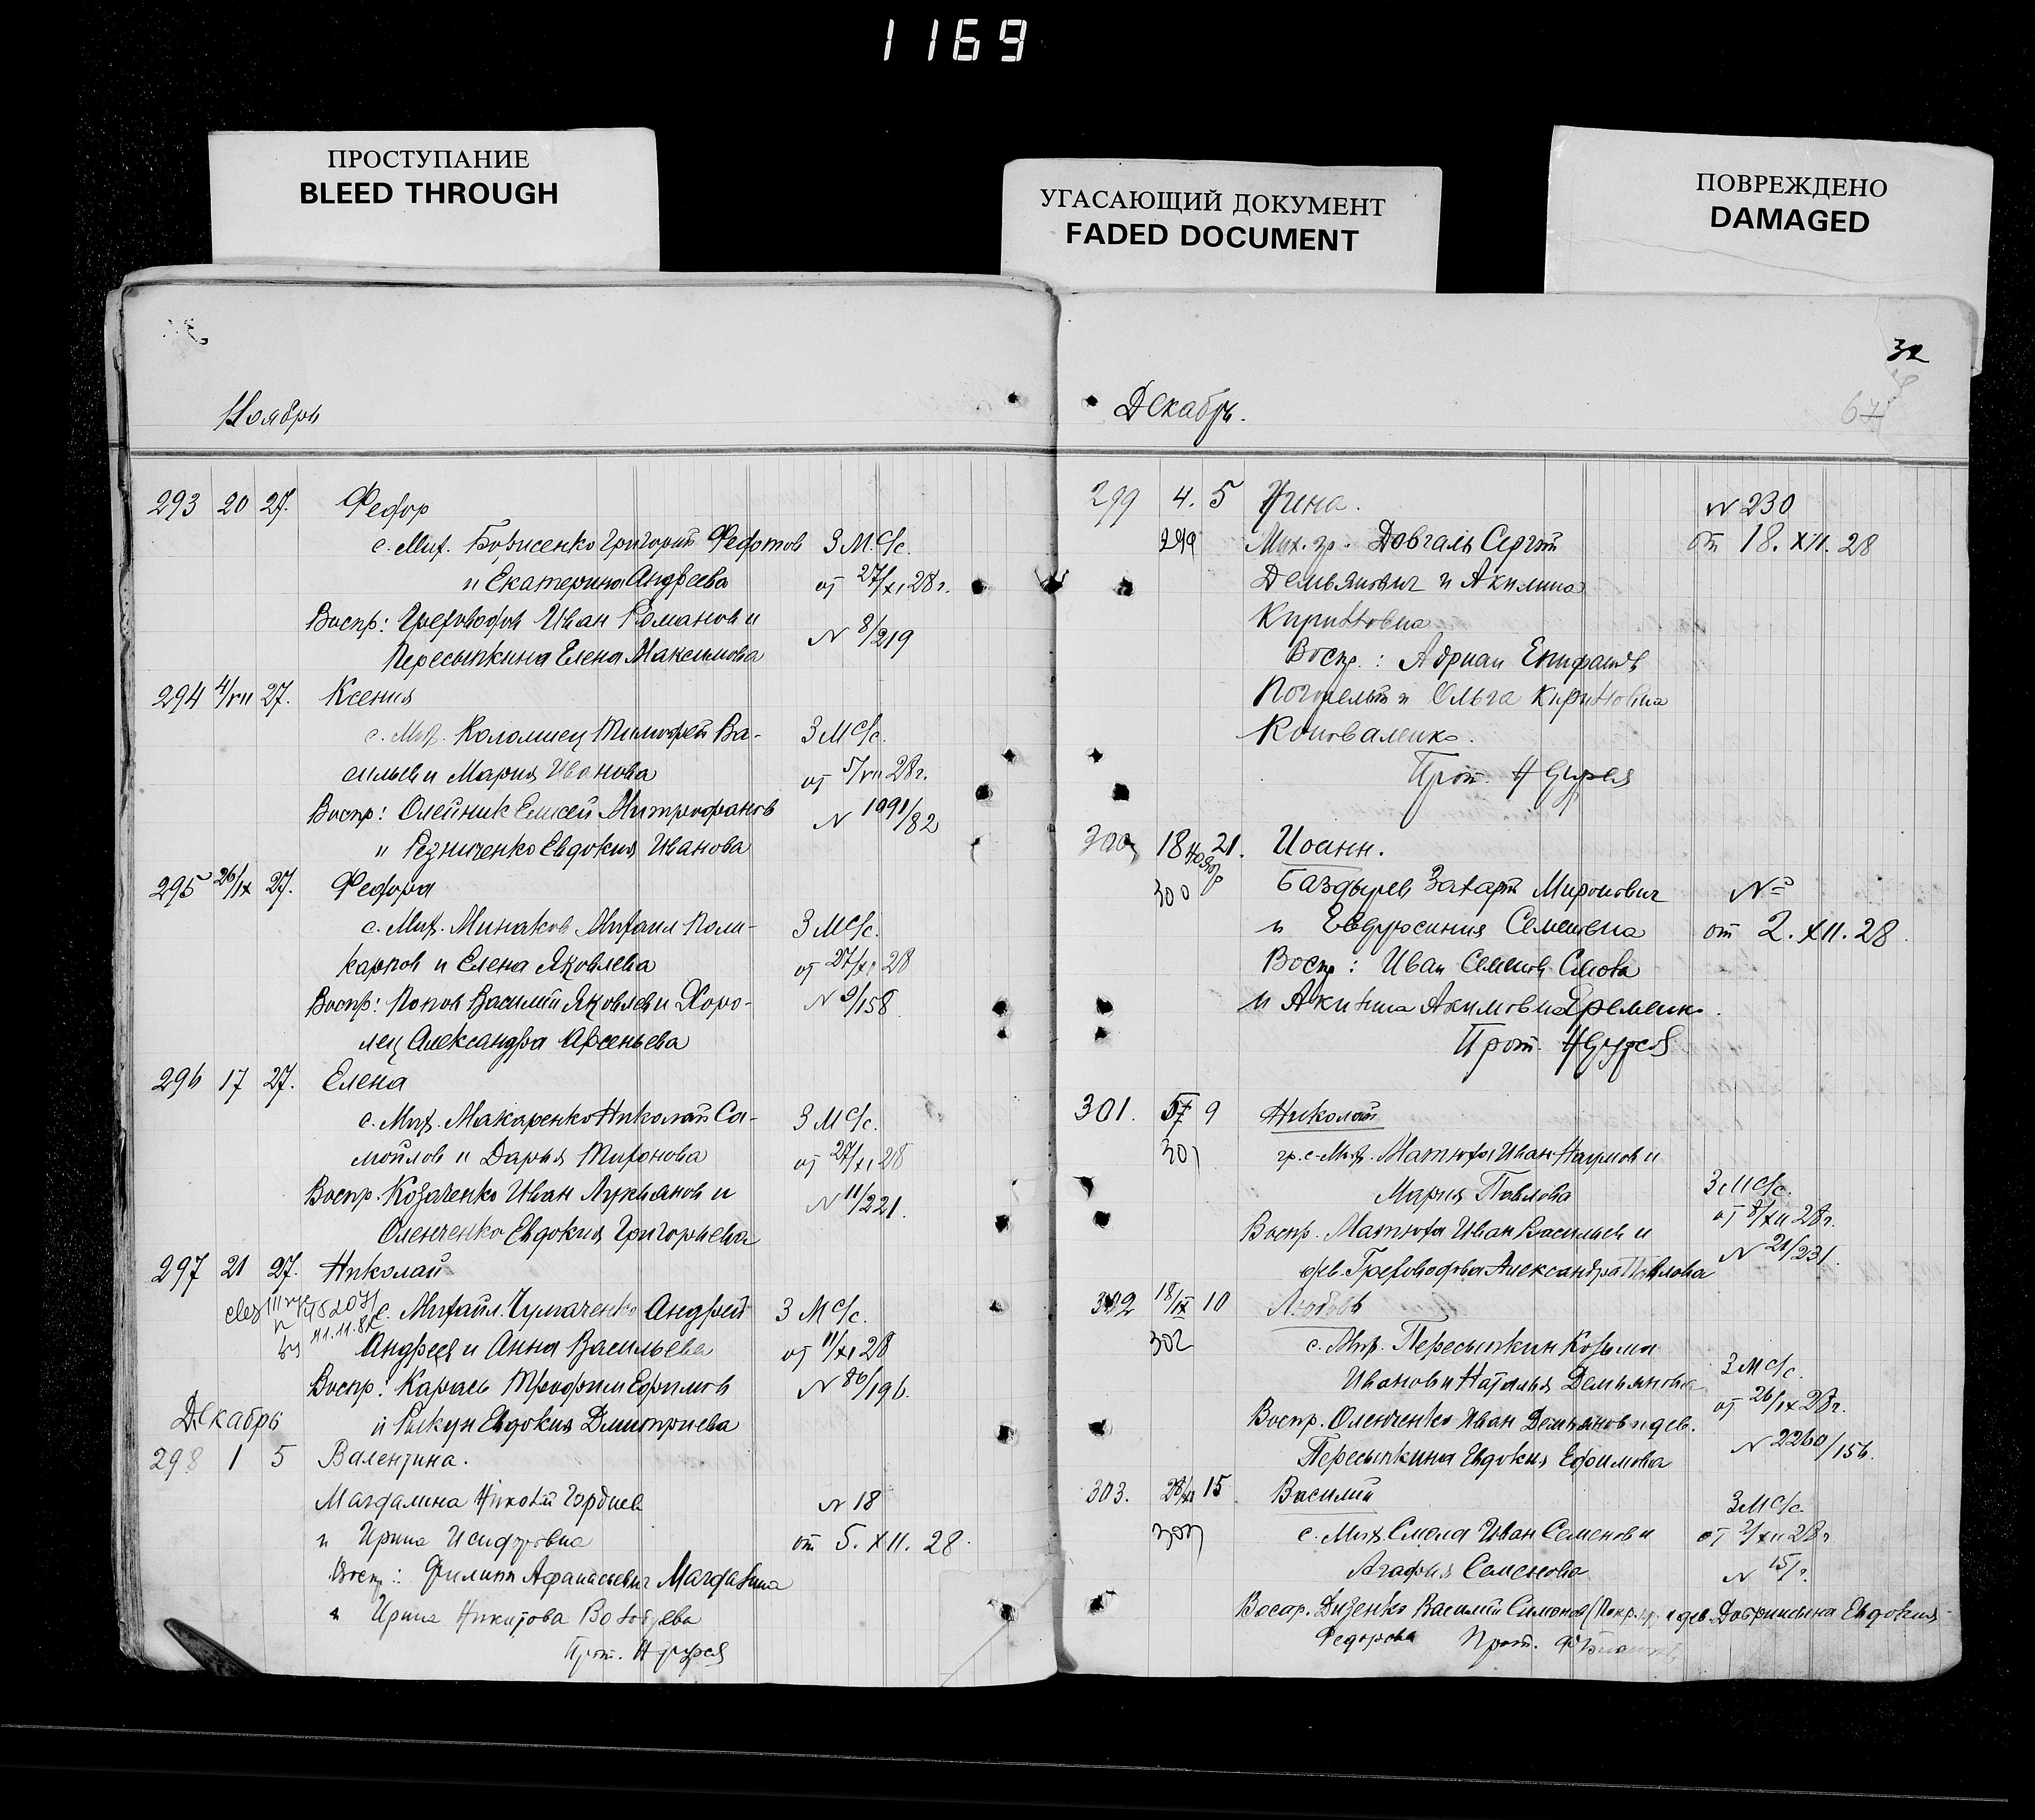 1169
ПРОСТУПАНИЕ
BLEED THROUGH
УГАСАЮЩИЙ ДОКУМЕНТ
FADED DOCUMENT
ПОВРЕЖДЕНО
DAMAGED
Ноябрь
293 20 27. Федор
с. Мих. Борисенко Григорий Федотов З М.С/с.
и Екатерина Андреева от 27/XI 28 г.
Воспр: Иван Романов и N 8/219
Пересыпкина Елена Максимова
294 4/VII 27. Ксения
с. Мих. Коломиец Тимофей Ва- З М С/с.
сильев и Мария Иванова от 5/VII 28 г.
Воспр: Олейник Елисей Митрофанов N 1091/82
и Резниченко Евдокия Иванова
295 26/IX 27. Федора
с. Мих. Минаков Михаил Поли- З М С/с.
карпов и Елена Яковлева от 27/XI 28
Воспр: Попов Василий Яковлев и Хоро- N 9/158
лец Александра Арсеньева
296 17 27. Елена
с. Мих. Макаренко Николай Са- З М С/с.
мойлов и Дарья Тихонова от 27/XI 28
Воспр. Козаченко Иван Лукьянов и N 11/221.
Оленченко Евдокия Григорьева
297 21 27. Николай
с. Михайл. Чумаченко Андрей З М С/с.
11.11.82
Андреев и Анна Васильева от 11/XI 28
Воспр: Карась Трофим Ефимов N 86/196.
и Рыкун Евдокия Дмитриева
Декабрь
298 1 5 Валентина.
Магдалина Гордиев N 18
и Ирина Исидоровна от 5. XII. 28.
Воспр: Филипп Афанасьевич Магдалина
и Ирина Никитова
Прот.
32
67
Декабрь.
299 4. 5 Нина. N 230
299 Мих. гр. Довгаль Сергей от 18. XII. 28
Демьянович и Акилина
Кирилловна
Воспр.: Адриан Епифанов
и Ольга Кирилловна
Коноваленко.
Прот.
300 18 21. Иоанн.
Ноябр
300 Баздырев Захарий Миронович №
и Евфросиния Семенова от 2. XII. 28.
Воспр: Иван Семенов Смола
и Акилина Акимовна Еременко.
Прот.
301. 5 9 Николай
301 гр. с. Мих. Матюха Иван Наумов и
Мария Павлова З М С/с.
от 8/XII 28 г.
Воспр. Матюха Иван Васильев и N 21/231.
дев. Александра Павлова
302 18/IX 10 Любовь
302 с. Мих. Пересыпкин Козьма
Иванов и Наталья Демьяновна З М С/с.
от 26/IX 28 г.
Воспр. Оленченко Иван Демьянов и дев. N 2260/156.
Пересыпкина Евдокия Ефимова
303. 15 Василий
З М С/с.
303 с. Мих. Смола Иван Семенов и от 2/XII 28 г.
Агафия Семенова N
Воспр. Василий Симонов и дев. Евдокия
Федорова Прот.